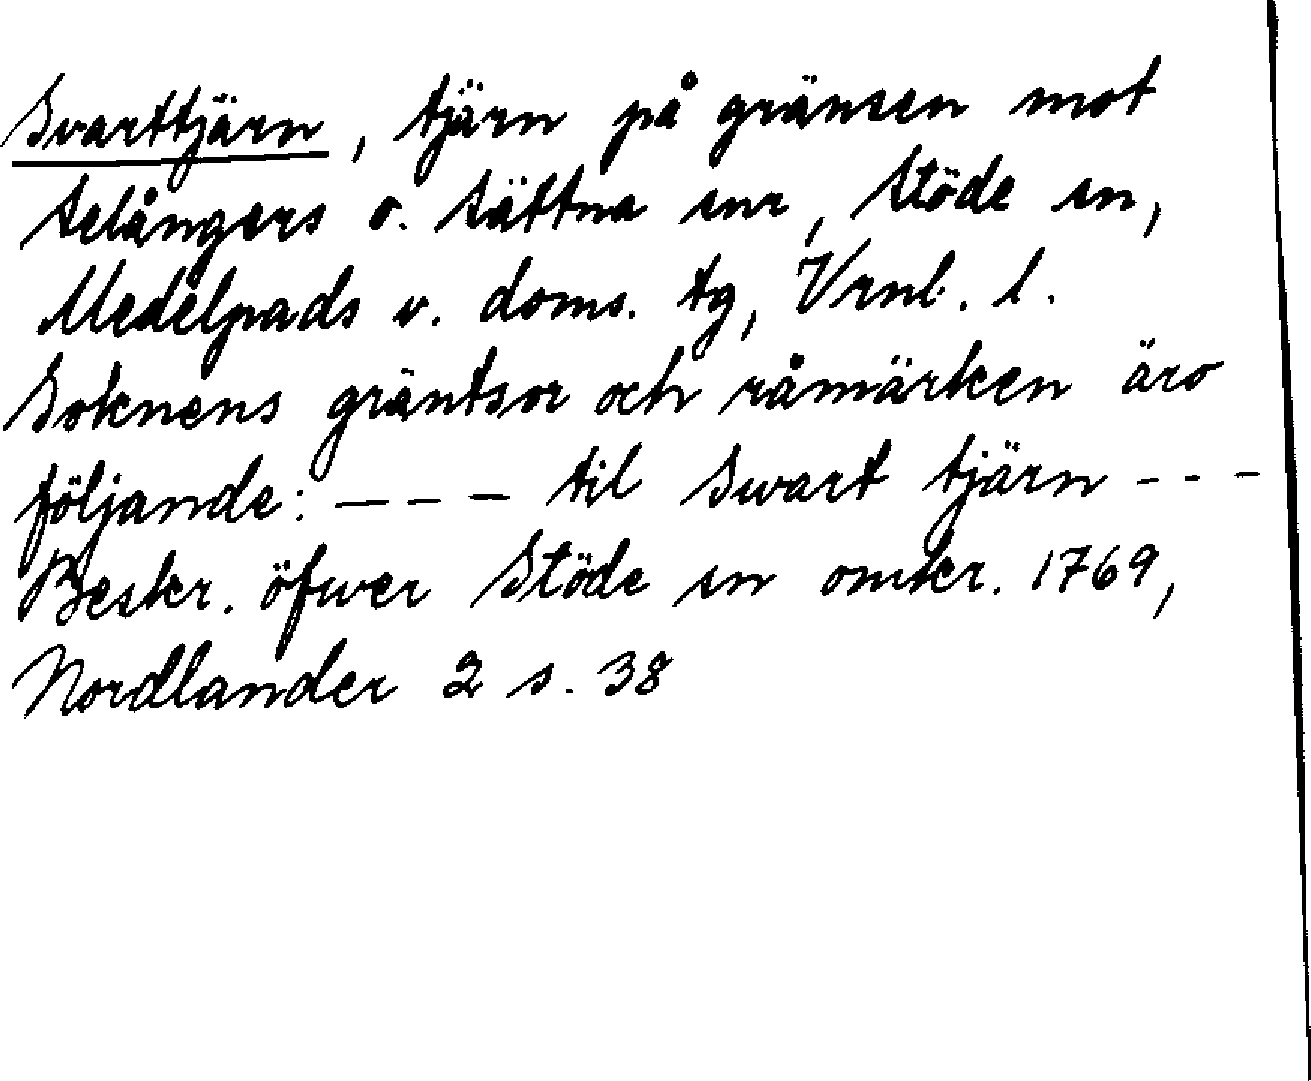 Svarttjärn, tjärn på gränsen mot
Selångers o. Sättna snr, Stöde sn,
Medelpads v. doms. tg, Vrnl. l.
Soknens gräntsor och råmärken äro
följande: — — — til Swart tjärn - - -
Beskr. öfwer Stöde sn omkr. 1769,
Nordlander 2 s. 38